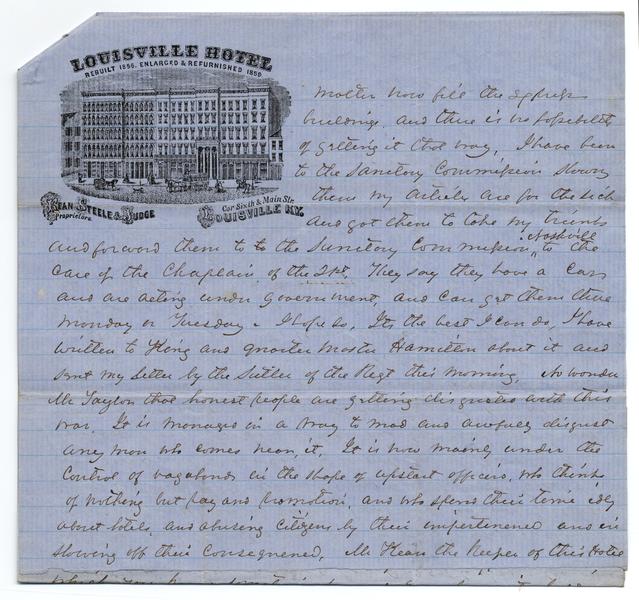 LOUISVILLE HOTEL
REBUILT 1856. ENLARGED & REFURNISHED 1859.
KEAN STEELE & JUDGE
Proprietors.
Cor Sixth & Main Sts.
LOUISVILLE KY.
matter now fill the express
buildings and there is no possibility
of getting it that way. I have been
to the Sanitary Commission showing
them my articles are for the sick
and got them to take my trunks
Nashville
and forward them to to the Sanitary Commission, to the
care of the Chaplain of the 21st. They say they have a Car
and are acting under government, and can get them there
Monday or Tuesday. I hope so, Its the best I can do, I have
written to King and quarter Master Hamilton about it and
sent my letter by the Sutler of the Regt this morning. No wonder
Mr Taylor that honest people are getting disgusted with this
war. It is managed in a way to mad and awfully disgust
any man who comes near it. It is now mainly under the
control of vagabonds in the shape of upstart officers, who think
of nothing but pay and promotion, and who spend their time idly
about hotels, and abusing Citizens by their impertinence and in
showing off their consequence. Mr Kean the Keeper of this Hotel